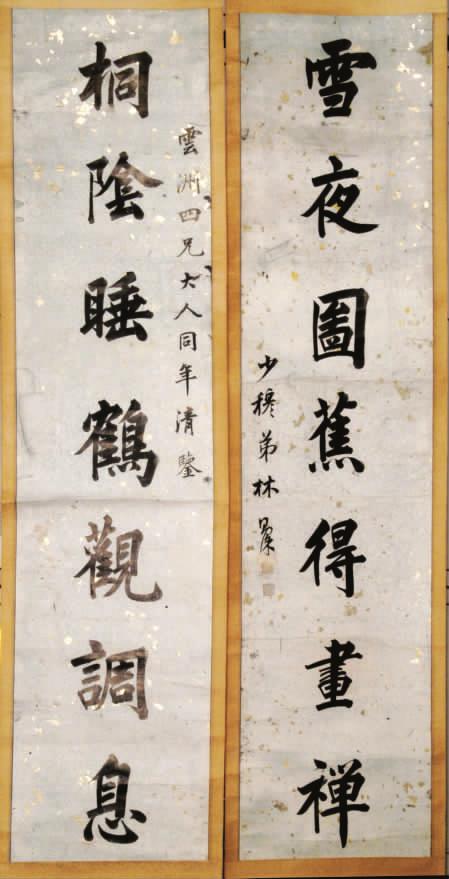 雪夜圖蕉得畫禪
少穆弟林則徐
雲洲四兄大人同年清鑒
桐陰睡鶴觀調息